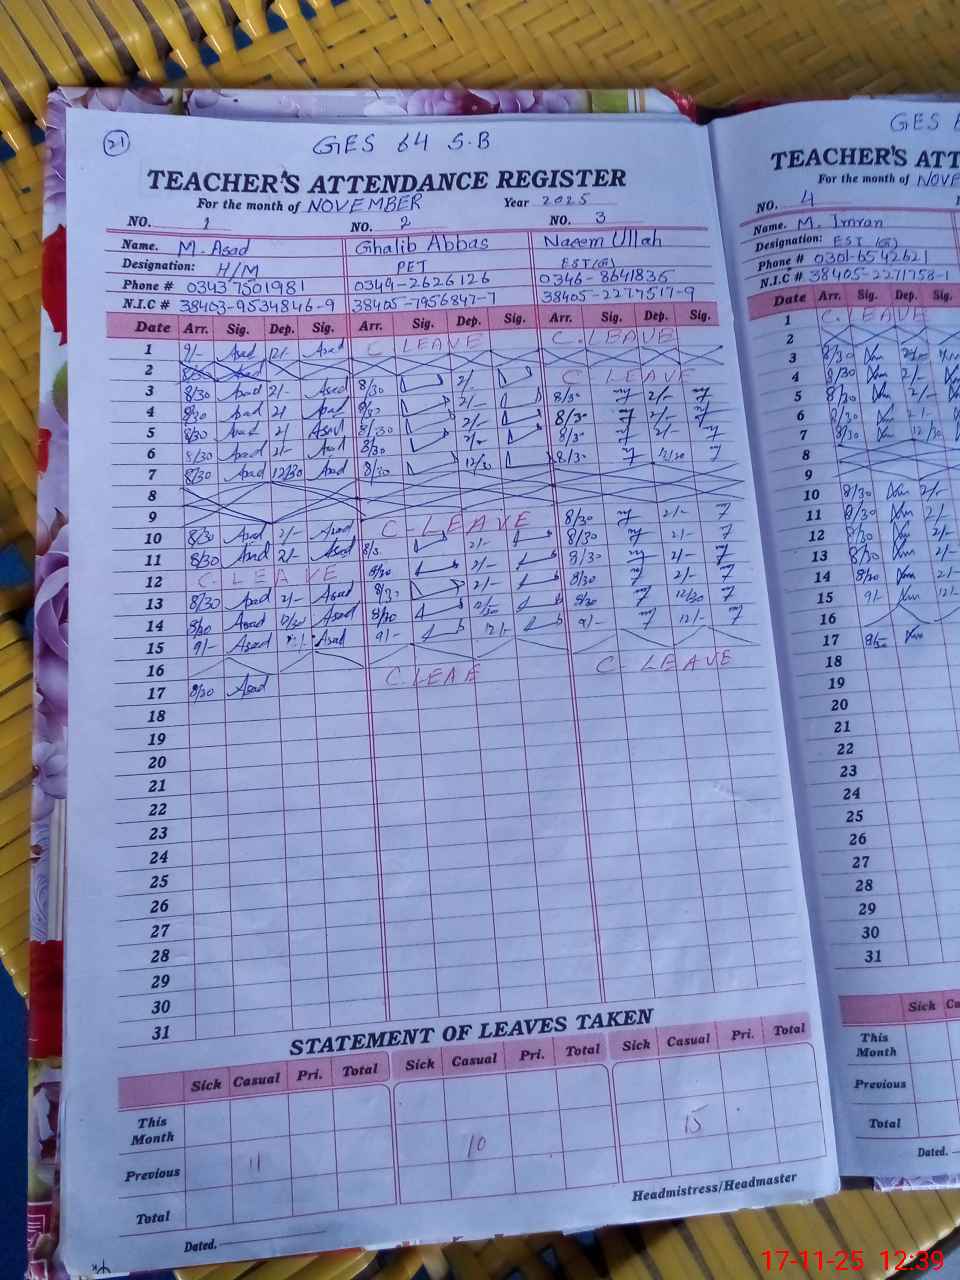 21
GES 64 S.B
TEACHER'S ATTENDANCE REGISTER
For the month of NOVEMBER Year 2025
NO. 1 NO. 2 NO. 3
Name. M. Asad Ghalib Abbas Naeem Ullah
Designation: H/M PET EST(G)
Phone # 03437501981 0349-2626126 0346-8641835
N.I.C # 38403-9534846-9 38405-7956847-7 38405-2277517-9
Date Arr. Sig. Dep. Sig. Arr. Sig. Dep. Sig. Arr. Sig. Dep. Sig.
1 9/- Asad 12/- Asad C LEAVE C. LEAVE
2
3 8/30 Asad 2/- Asad 8/30 2/- C LEAVE
4 8/30 Asad 2/ Asad 8/30 2/- 8/30 2/-
5 8/30 Asad 2/ Asad 8/30 2/- 8/30 2/-
6 8/30 Asad 2/- Asad 8/30 2/- 8/30 2/-
7 8/30 Asad 12/30 Asad 8/30 12/30 8/30 12/30
8
9
10 8/30 Asad 2/- Asad C-LEAVE 8/30 2/-
11 8/30 Asad 2/- Asad 2/- 8/30 2/-
12 C. LEAVE 8/30 2/- 8/30 2/-
13 8/30 Asad 2/- Asad 8/30 2/- 8/30 2/-
14 8/30 Asad 12/30 Asad 8/30 12/30 8/30 12/30
15 9/- Asad Asad 9/- 12/- 9/- 12/-
16
17 8/30 Asad C. LEAE C. LEAVE
18
19
20
21
22
23
24
25
26
27
28
29
30
31
STATEMENT OF LEAVES TAKEN
Sick Casual Pri. Total Sick Casual Pri. Total Sick Casual Pri. Total
This Month
Previous 11 10 15
Total
Headmistress/Headmaster
Dated.
GES
TEACHER'S ATT
For the month of NOVE
NO. 4
Name. M. Imran
Designation: EST (G)
Phone # 0301-6542621
N.I.C # 38405-2271758-1
Date Arr. Sig. Dep. Sig.
1 C. LEAVE
2
3 8/30 2/-
4 8/30 2/-
5 8/30 2/-
6 8/30 2/-
7 8/30 12/30
8
9
10 8/30 2/-
11 8/30 2/
12 8/30 2/-
13 8/30 2/-
14 8/30 2/-
15 9/- 12/-
16
17 8/30
18
19
20
21
22
23
24
25
26
27
28
29
30
31
Sick Ca
This Month
Previous
Total
Dated.
17-11-25 12:39